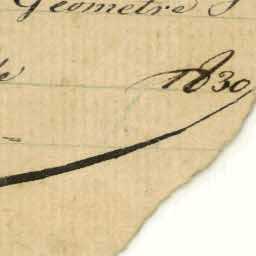 Géometre
1830